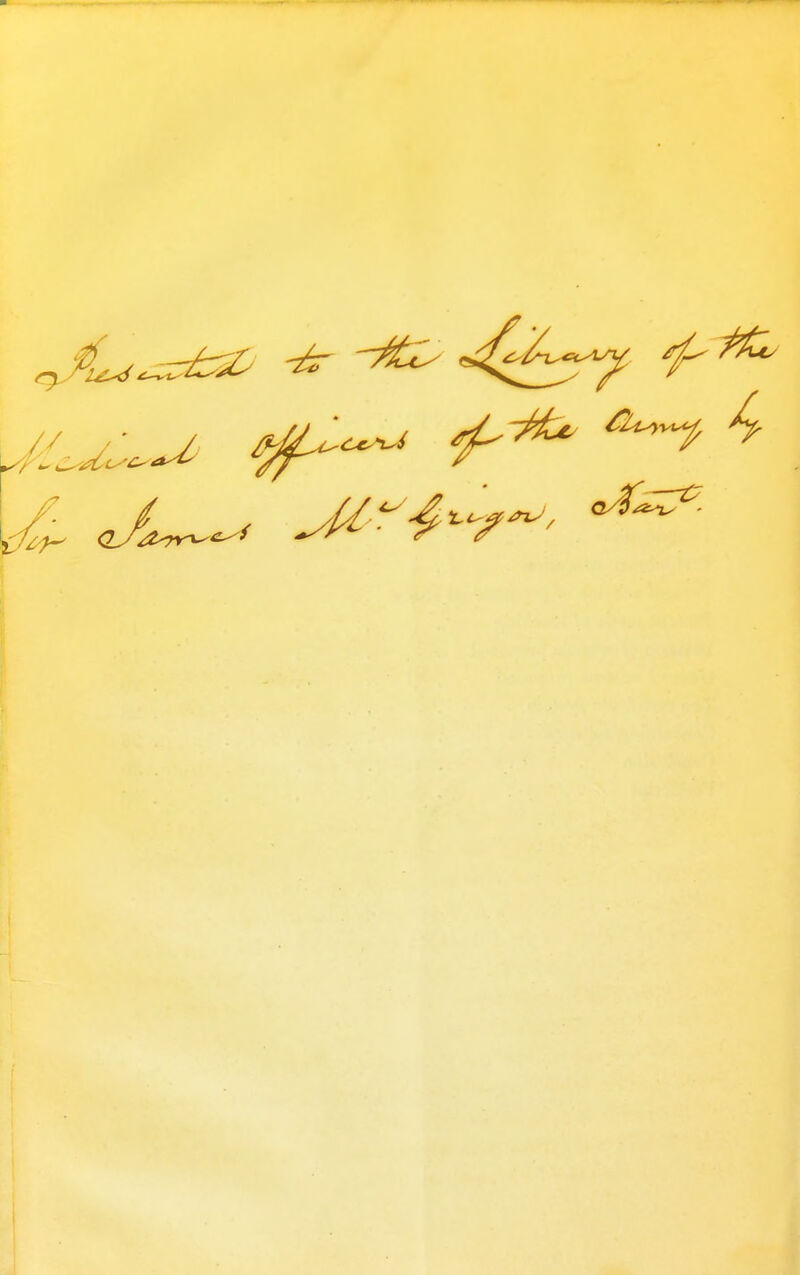 Presented to the Library of the
Medical Officers of the Army by
Sir James McGrigor, Bart.